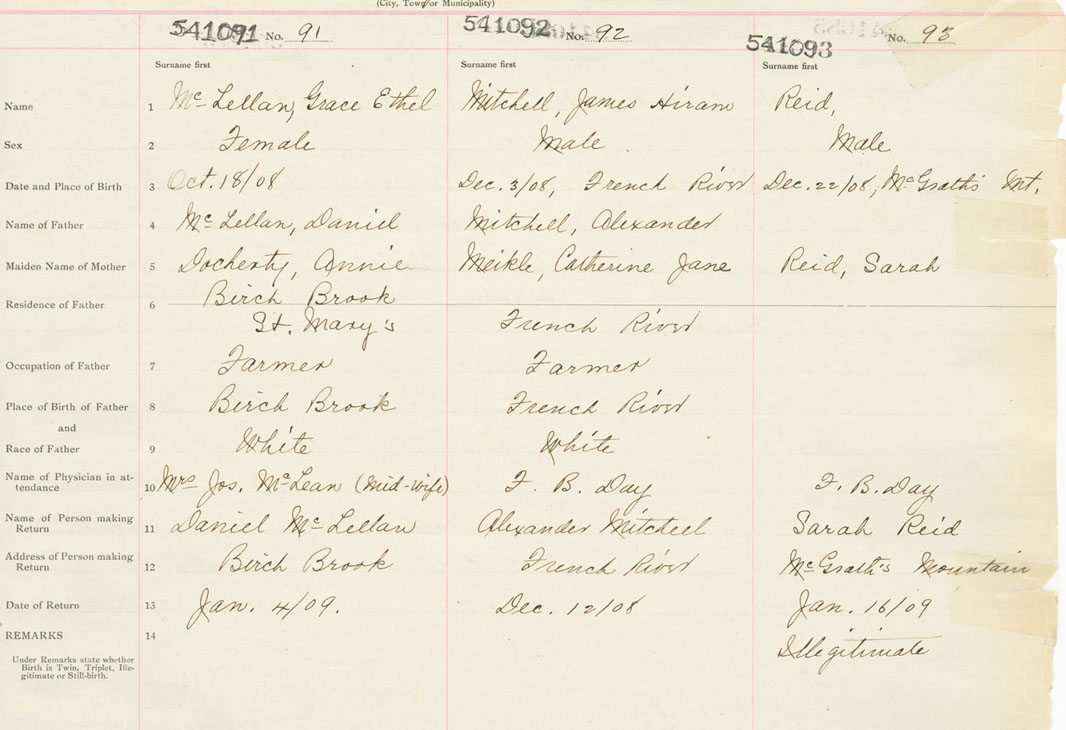 (City, Town or Municipality)
541091 No. 91 541092 No. 92 541093 No. 93
Surname first Surname first Surname first
Name 1 McLellan, Grace Ethel Mitchell, James Hiram Reid,
Sex 2 Female Male Male
Date and Place of Birth 3 Oct. 18/08 Dec. 3/08, French River Dec. 22/08, McGrath's Mt.
Name of Father 4 McLellan, Daniel Mitchell, Alexander
Maiden Name of Mother 5 Docherty, Annie Meikle, Catherine Jane Reid, Sarah
Residence of Father 6 Birch Brook
St. Mary's French River
Occupation of Father 7 Farmer Farmer
Place of Birth of Father 8 Birch Brook French River
and
Race of Father 9 White White
Name of Physician in at-
tendance 10 Mrs Jos. McLean (Mid-wife) F. B. Day F. B. Day
Name of Person making
Return 11 Daniel McLellan Alexander Mitchell Sarah Reid
Address of Person making
Return 12 Birch Brook French River McGrath's Mountain
Date of Return 13 Jan. 4/09. Dec. 12/08 Jan. 16/09
REMARKS 14
Illegitimate
Under Remarks state whether
Birth is Twin, Triplet, Ille-
gitimate or Still-birth.